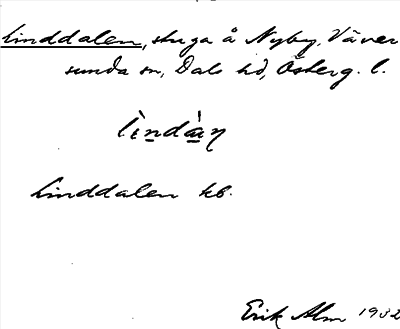 Linddalen, stuga å Nyby, Väver
sunda sn, Dals hd, Österg. l.
lìndàn
Linddalen kb.
Erik Alm 1932